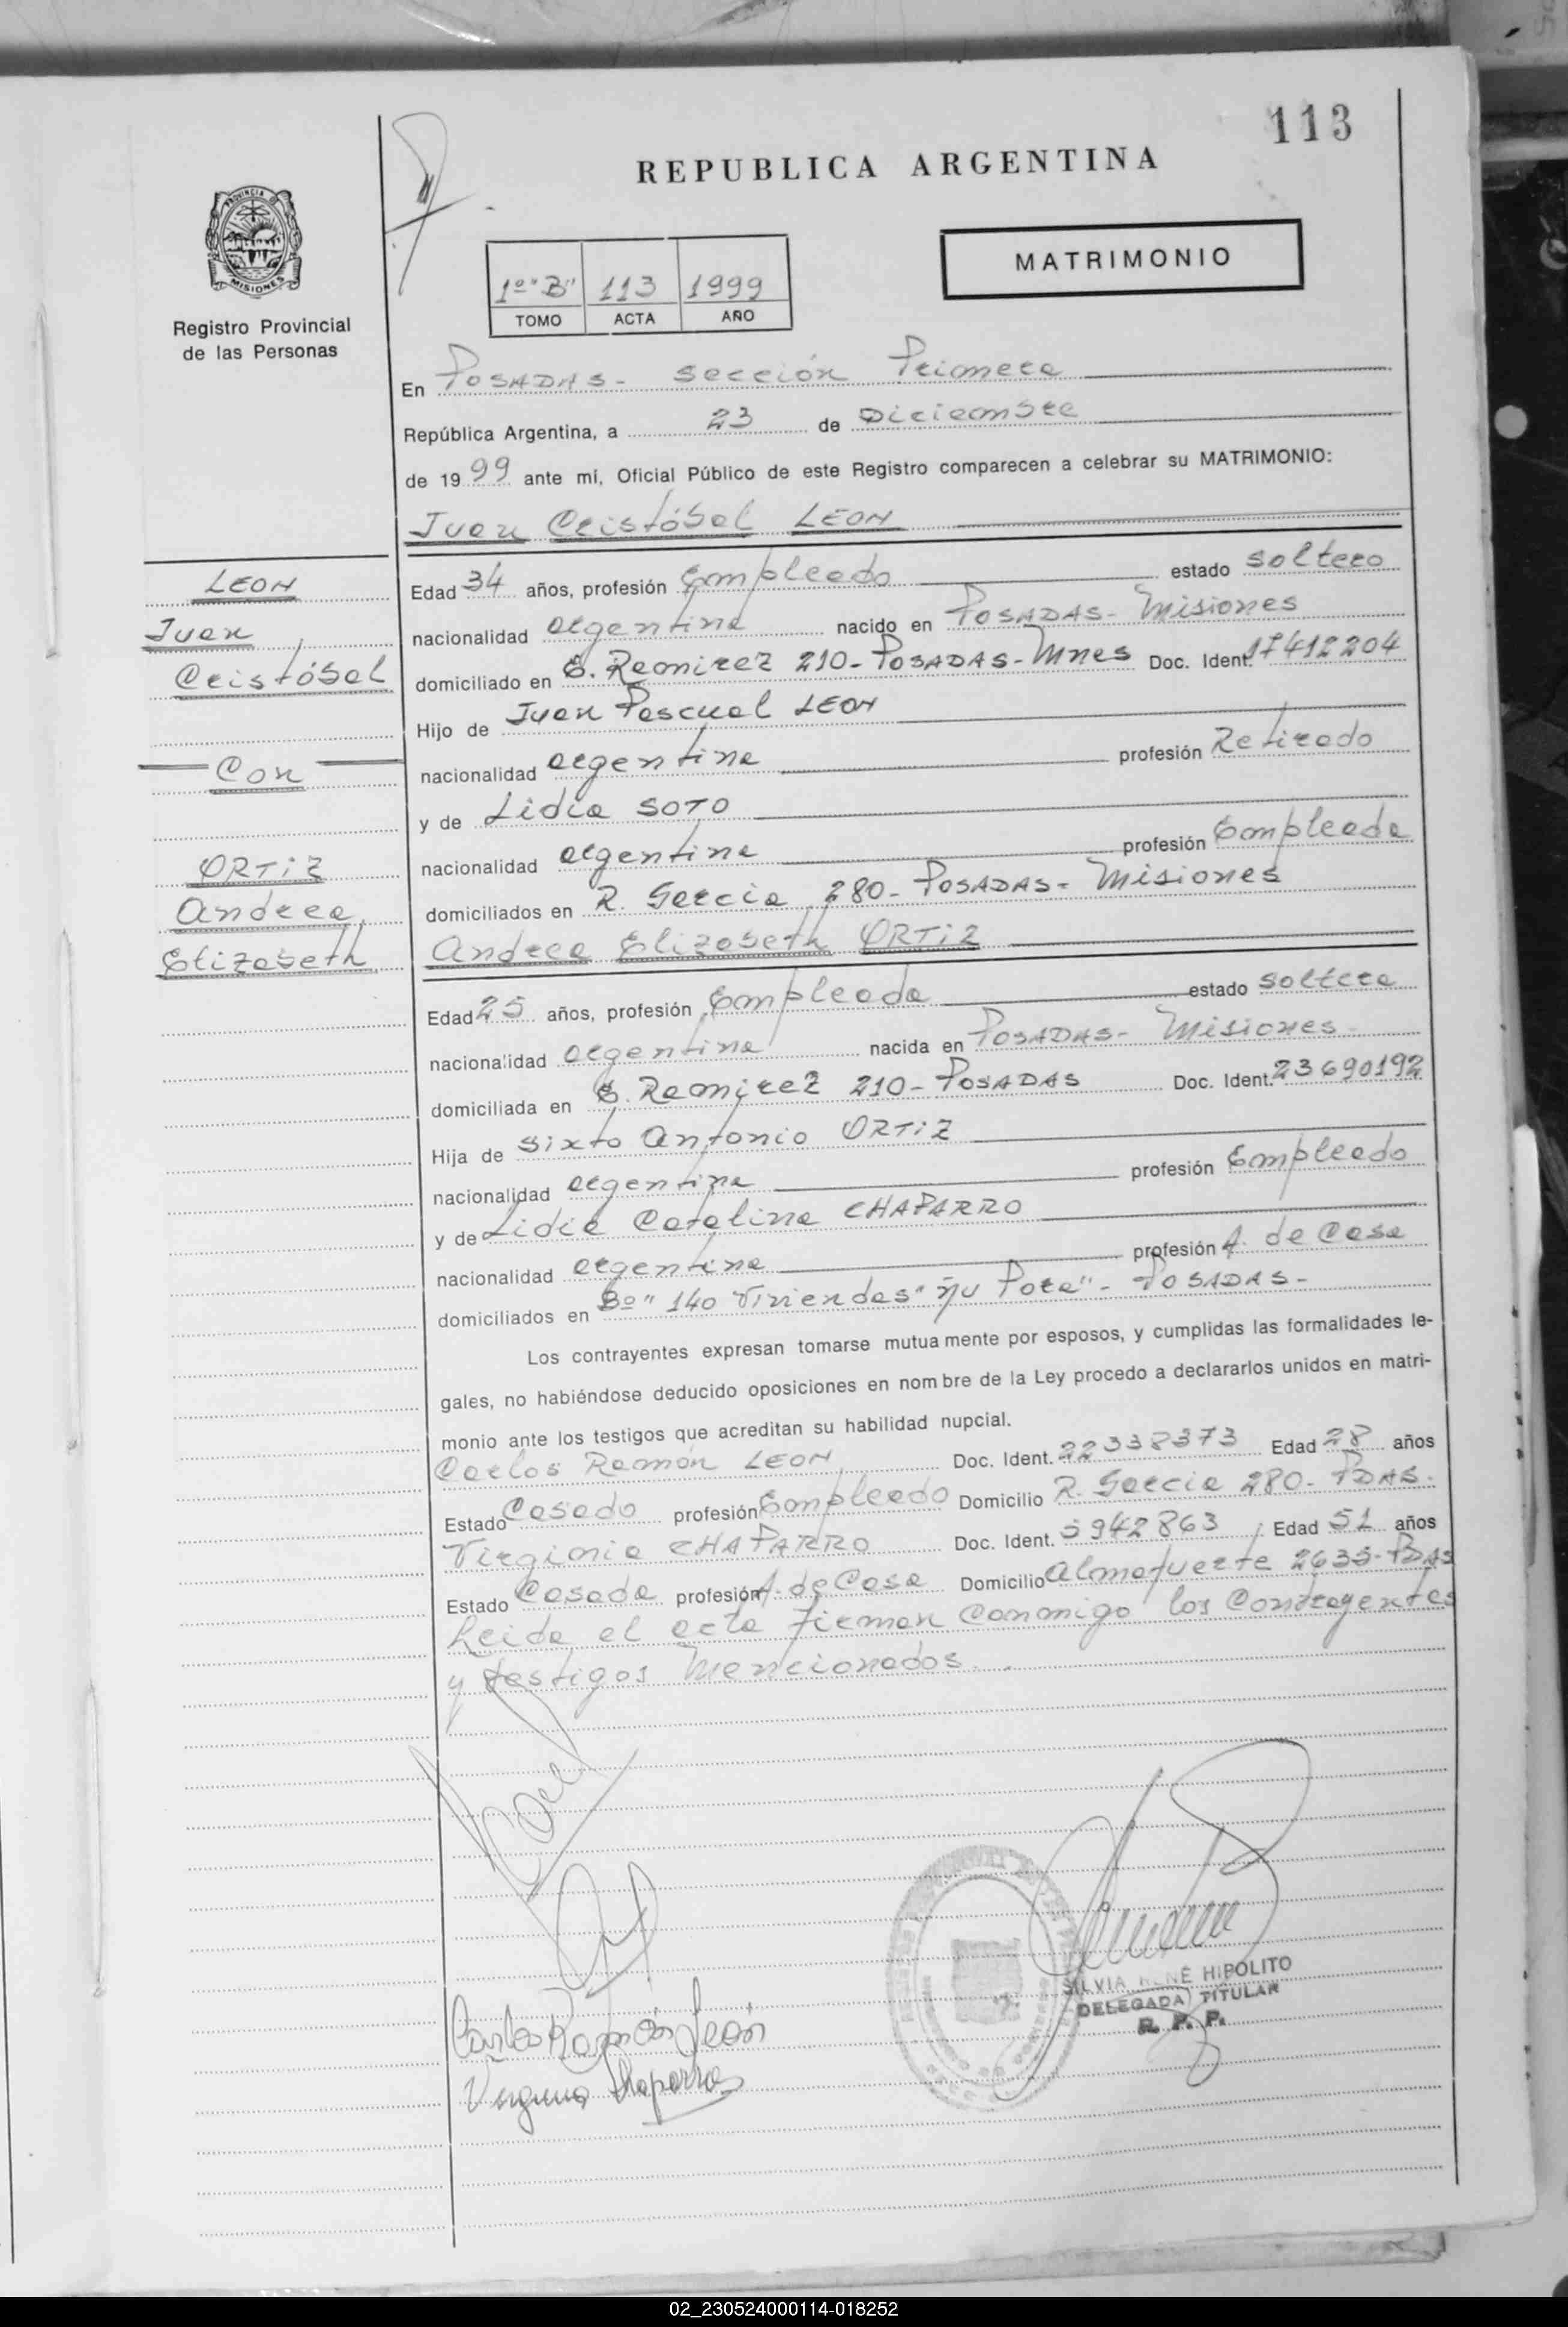 113
REPUBLICA ARGENTINA
PROVINCIA D
MISIONES
Registro Provincial
de las Personas
1º "B" 113 1999
TOMO ACTA AÑO
MATRIMONIO
En POSADAS - sección Primera
República Argentina, a 23 de Diciembre
de 1999 ante mí, Oficial Público de este Registro comparecen a celebrar su MATRIMONIO:
Juan Cristóbal LEON
LEON
Juan
Cristóbal
Con
ORTIZ
Andrea
Elizabeth
Edad 34 años, profesión Empleado estado soltero
nacionalidad argentina nacido en POSADAS - Misiones
domiciliado en E. Ramirez 210 - POSADAS - Mnes Doc. Ident. 17412204
Hijo de Juan Pascual LEON
nacionalidad argentina profesión Retirado
y de Lidia SOTO
nacionalidad argentina profesión Empleada
domiciliados en R. Garcia 280 - POSADAS - Misiones
Andrea Elizabeth ORTIZ
Edad 25 años, profesión Empleada estado soltera
nacionalidad argentina nacida en POSADAS - Misiones
domiciliada en E. Ramirez 210 - POSADAS Doc. Ident. 23690192
Hija de Sixto Antonio ORTIZ
nacionalidad argentina profesión Empleado
y de Lidia Catalina CHAPARRO
nacionalidad argentina profesión A. de Casa
domiciliados en Bº "140 Viviendas" "Ñu Pora" - POSADAS -
Los contrayentes expresan tomarse mutuamente por esposos, y cumplidas las formalidades le-
gales, no habiéndose deducido oposiciones en nombre de la Ley procedo a declararlos unidos en matri-
monio ante los testigos que acreditan su habilidad nupcial.
Carlos Ramón LEON Doc. Ident. 22338373 Edad 28 años
Estado Casado profesión Empleado Domicilio R. Garcia 280 - PDAS.
Virginia CHAPARRO Doc. Ident. 5942863 Edad 51 años
Estado Casada profesión A. de Casa Domicilio Almafuerte 2635 - PDAS
Leida el acta firman conmigo los Contrayentes
y testigos Mencionados.
Carlos Ramón León
Virginia Chaparro
SILVIA RENE HIPOLITO
DELEGADA TITULAR
R. P. P.
02_230524000114-018252